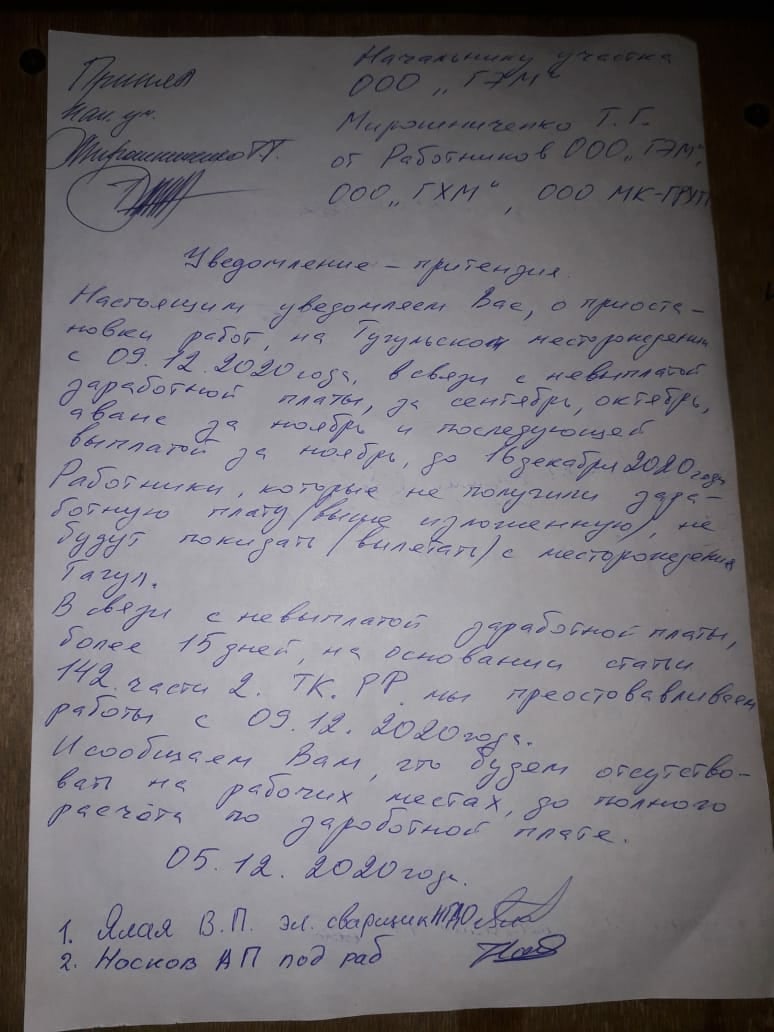 Принял
Нач. уч.
Мирошниченко Т.Г.
Начальнику участка
ООО „ГЭМ“
Мирошниченко Т. Г.
от Работников ООО „ГЭМ“,
ООО „ГХМ“, ООО МК-ГРУП
Уведомление – притензия.
Настоящим уведомляем Вас, о приоста-
новки работ, на Тугульском месторождении
с 09.12.2020 года, в связи с невыплатой
заработной платы, за сентябрь, октябрь,
аванс за ноябрь и последующей
выплатой за ноябрь, до 16 декабря 2020 года
Работники, которые не получили зара-
ботную плату (выше изложенную), не
будут покидать (вылетать) с месторождения
Тагул.
В связи с невыплатой заработной платы,
более 15 дней, на основании статьи
142. части 2. ТК. РФ. мы преостовавливаем
работы с 09.12.2020 года.
И сообщаем Вам, что будем отсутство-
вать на рабочих местах, до полного
расчёта по зароботной плате.
05.12.2020 года.
1. Ялая В.П. эл. сварщик
2. Носков АП под раб